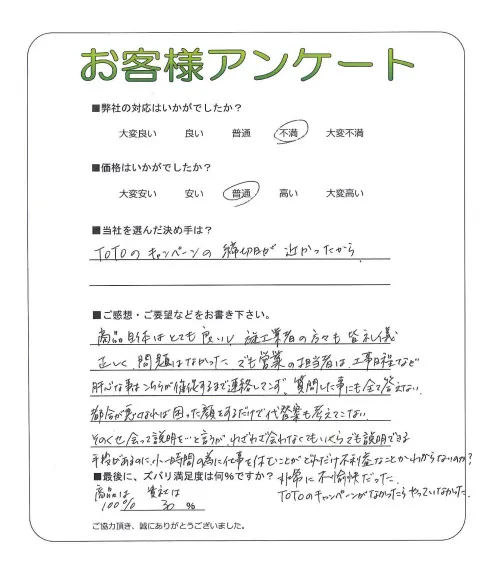 お客様アンケート
■弊社の対応はいかがでしたか？
大変良い 良い 普通 不満 大変不満
■価格はいかがでしたか？
大変安い 安い 普通 高い 大変高い
■当社を選んだ決め手は？
TOTOのキャンペーンの締切日が近かったから
■ご感想・ご要望などをお書き下さい。
商品自体はとても良いし、施工業者の方々も皆礼儀
正しく問題はなかった でも営業の担当者は、工事日程など
肝心な事はこちらが催促するまで連絡してこず、質問した事にも全て答えない。
都合が悪くなれば困った顔をするだけで代替案も考えてこない
そのくせ会って説明を…と言うが、わざわざ会わなくてもいくらでも説明できる
手段があるのに、小一時間の為に仕事を休むことがどれだけ不利益なことかわからないのか？
■最後に、ズバリ満足度は何％ですか？ 非常に不愉快だった。
商品は 貴社は TOTOのキャンペーンがなかったらやっていなかった。
100% 30 %
ご協力頂き、誠にありがとうございました。